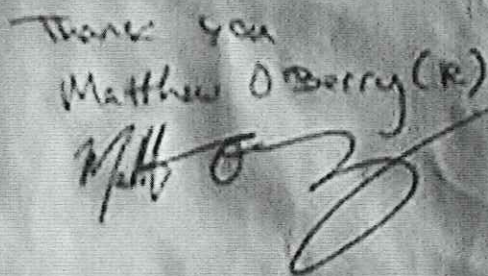 Thank you
Matthew O'Berry (R)
Matt O